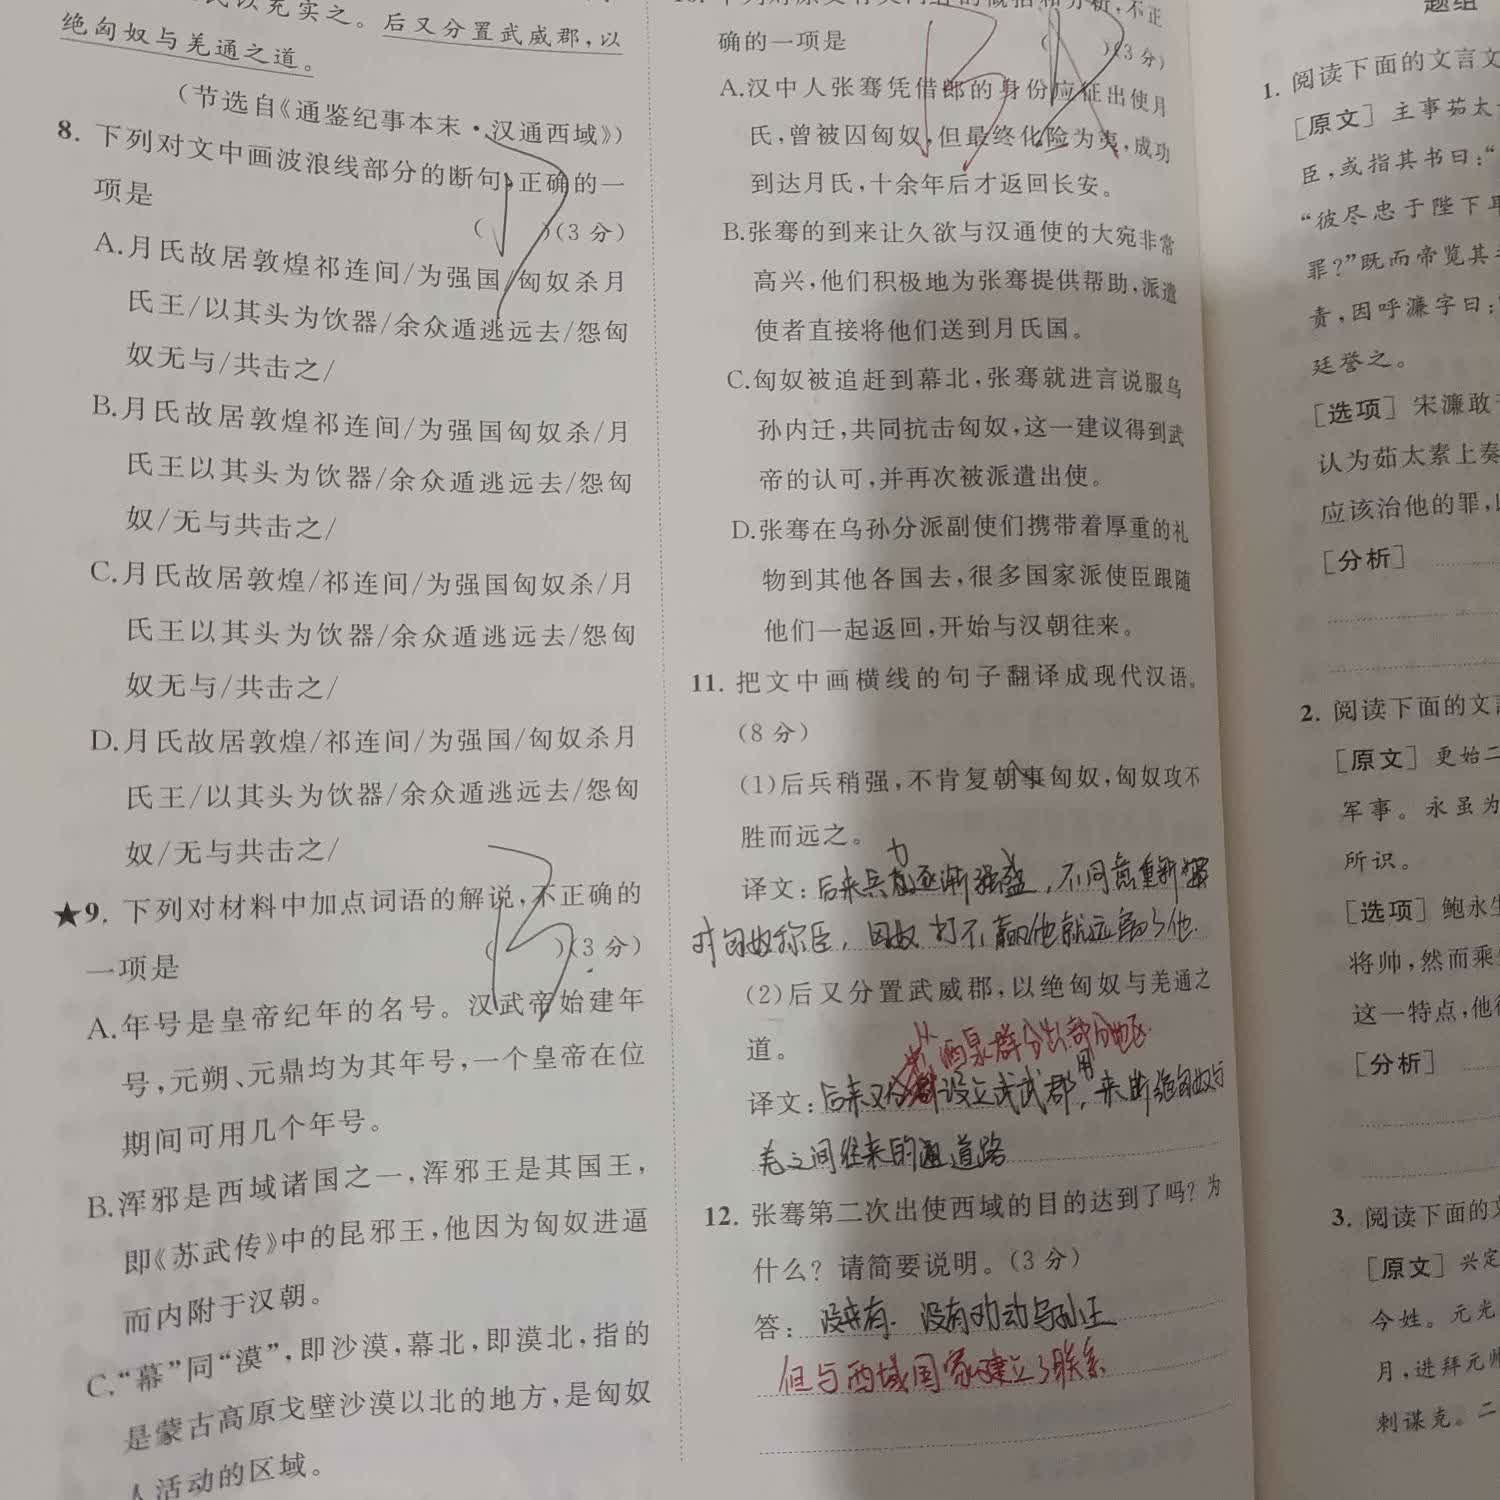 民以充实之。后又分置武威郡,以
绝匈奴与羌通之道。
(节选自《通鉴纪事本末·汉通西域》)
8. 下列对文中画波浪线部分的断句,正确的一
项是 ( )(3分)
A.月氏故居敦煌祁连间/为强国/匈奴杀月
氏王/以其头为饮器/余众遁逃远去/怨匈
奴无与/共击之/
B.月氏故居敦煌祁连间/为强国匈奴杀/月
氏王以其头为饮器/余众遁逃远去/怨匈
奴/无与共击之/
C.月氏故居敦煌/祁连间/为强国匈奴杀/月
氏王以其头为饮器/余众遁逃远去/怨匈
奴无与/共击之/
D.月氏故居敦煌/祁连间/为强国/匈奴杀月
氏王/以其头为饮器/余众遁逃远去/怨匈
奴/无与共击之/
★9. 下列对材料中加点词语的解说,不正确的
一项是 ( )(3分)
A.年号是皇帝纪年的名号。汉武帝始建年
号,元朔、元鼎均为其年号,一个皇帝在位
期间可用几个年号。
B.浑邪是西域诸国之一,浑邪王是其国王,
即《苏武传》中的昆邪王,他因为匈奴进逼
而内附于汉朝。
C.“幕”同“漠”,即沙漠,幕北,即漠北,指的
是蒙古高原戈壁沙漠以北的地方,是匈奴
人活动的区域。
确的一项是 ( )(3分)
A.汉中人张骞凭借郎的身份应征出使月
氏,曾被囚匈奴,但最终化险为夷,成功
到达月氏,十余年后才返回长安。
B.张骞的到来让久欲与汉通使的大宛非常
高兴,他们积极地为张骞提供帮助,派遣
使者直接将他们送到月氏国。
C.匈奴被追赶到幕北,张骞就进言说服乌
孙内迁,共同抗击匈奴,这一建议得到武
帝的认可,并再次被派遣出使。
D.张骞在乌孙分派副使们携带着厚重的礼
物到其他各国去,很多国家派使臣跟随
他们一起返回,开始与汉朝往来。
11. 把文中画横线的句子翻译成现代汉语。
(8分)
(1)后兵稍强,不肯复朝事匈奴,匈奴攻不
胜而远之。
译文:后来兵力逐渐强盛,不同意重新
对匈奴称臣,匈奴打不赢他就远离了他.
(2)后又分置武威郡,以绝匈奴与羌通之
道。
从酒泉群分出部分地区.
译文:后来又设立武武郡,用来断绝匈奴与
羌之间往来的通道路
12. 张骞第二次出使西域的目的达到了吗?为
什么?请简要说明。(3分)
答: 没有. 没有劝动乌孙王
但与西域国家建立了联系
题组
1. 阅读下面的文言文
[原文] 主事茹太
臣,或指其书曰:“
“彼尽忠于陛下耳
罪?”既而帝览其
责,因呼濂字曰:
廷誉之。
[选项] 宋濂敢
认为茹太素上奏
应该治他的罪,
[分析]
2. 阅读下面的文
[原文] 更始二
军事。永虽为
所识。
[选项] 鲍永生
将帅,然而乘
这一特点,他
[分析]
3. 阅读下面的文
[原文] 兴定
今姓。元光
月,进拜元帅
刺谋克。二